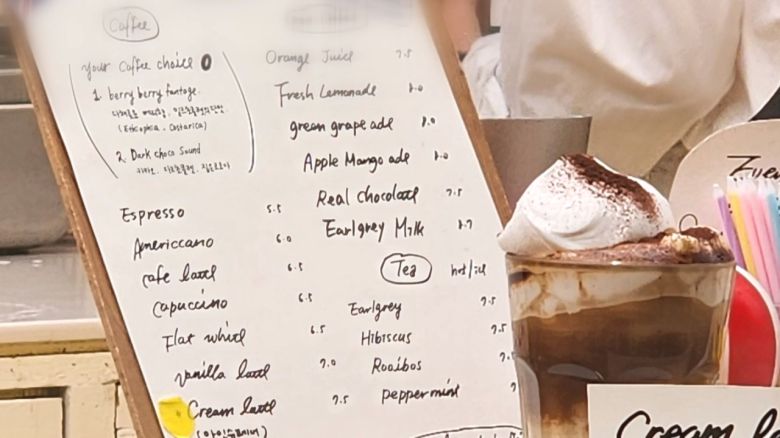 Coffee
your Coffee choice
1. berry berry fantage.
(Ethiophia . Costarica)
2. Dark choco Sound
Espresso 5.5
Americcano 6.0
cafe latte 6.5
Capuccino 6.5
Flat white 6.5
vanilla latte 7.0
Cream latte 7.5
Orange Juice 7.5
Fresh Lemonade 8.0
green grape ade 8.0
Apple Mango ade 8.0
Real chocolate 7.5
Earlgrey Milk
Tea hot/ice
Earlgrey 7.5
Hibiscus 7.5
Rooibos
peppermint
Cream